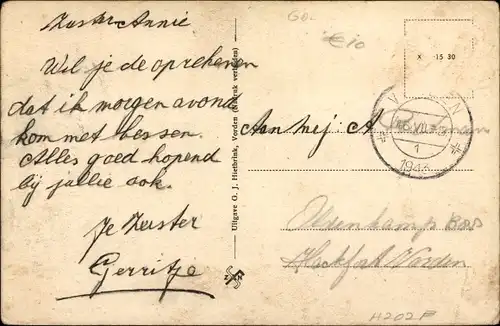 Zuster Annie
Wil je de
dat ik morgen avond
kom met bessen.
Alles goed hopend
bij jullie ook.
Je Zuster
Gerritje
Uitgave G. J. Hietbrink, Vorden (Nadruk verboden)
€10
X 15 30
VII
1
1943
Aan Mej A
Hackfort Vorden
H202F